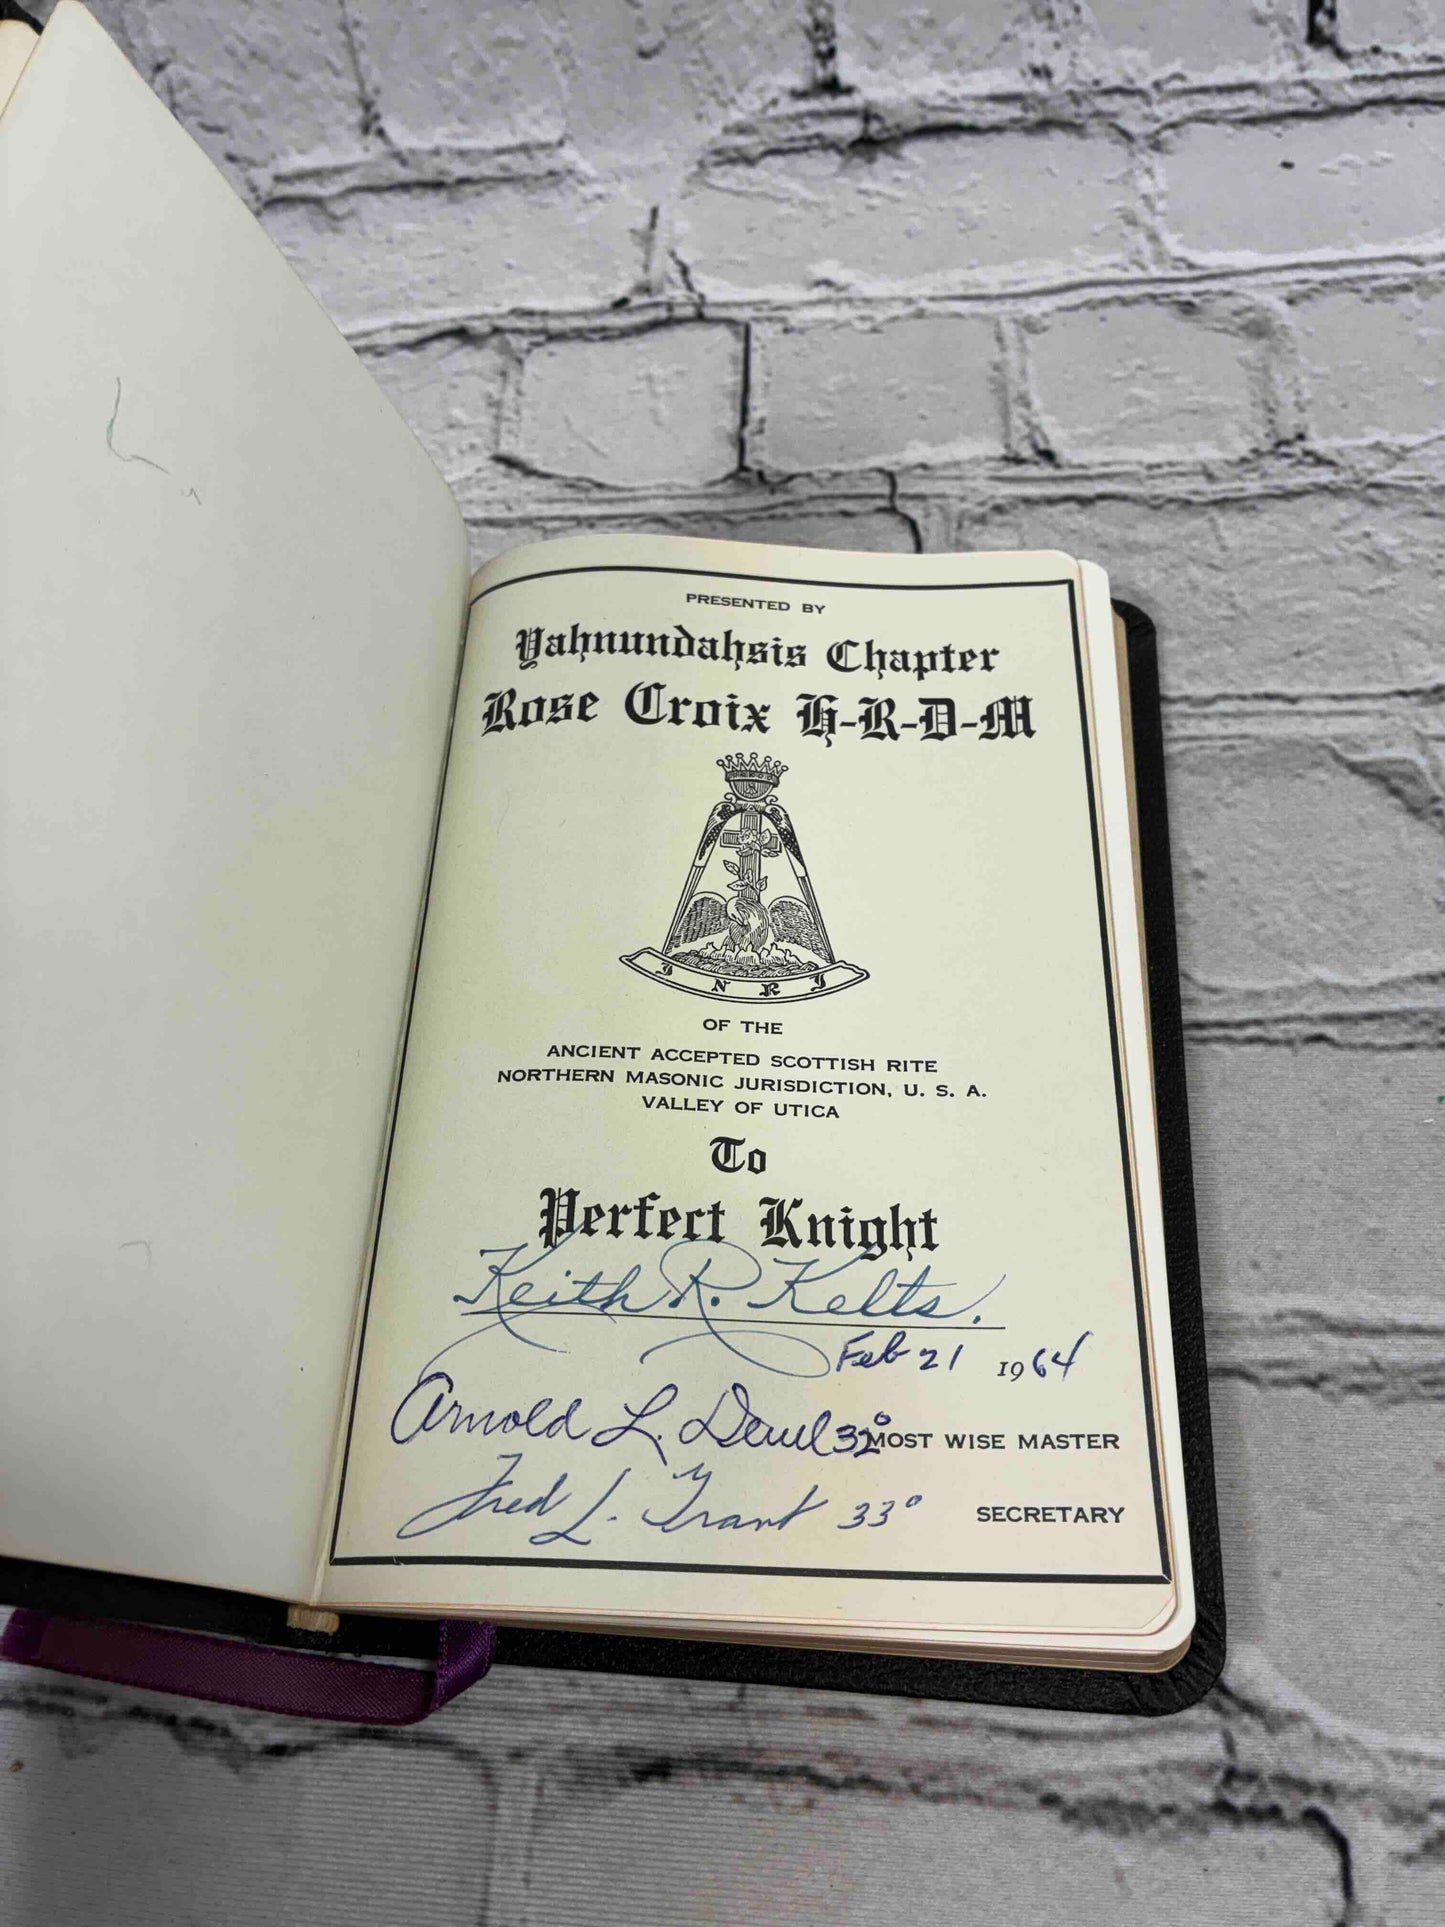 PRESENTED BY
Yahnundahsis Chapter
Rose Croix H-R-D-M
I N R I
OF THE
ANCIENT ACCEPTED SCOTTISH RITE
NORTHERN MASONIC JURISDICTION, U. S. A.
VALLEY OF UTICA
To
Perfect Knight
Keith R. Kelts.
Feb 21 1964
Arnold L. 32° MOST WISE MASTER
Fred L. Grant 33° SECRETARY